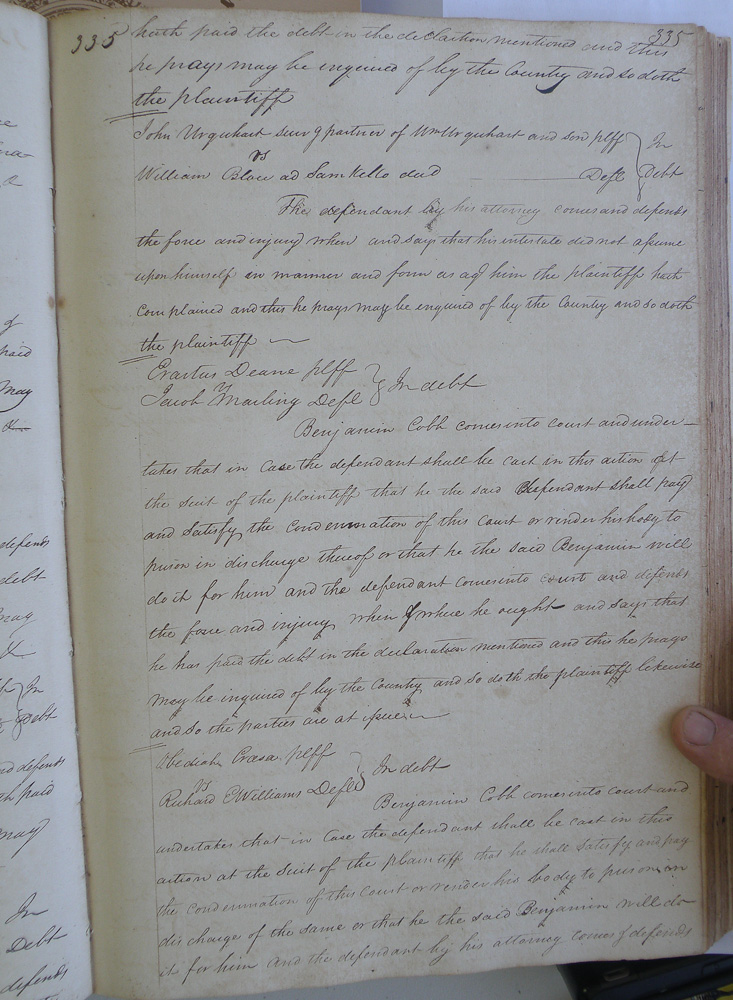 335 335
hath paid the debt in the declaration mentioned and this
he prays may be inquired of by the Country and so doth
the plaintiff
John Urquhart surv g partner of Wm Urquhart and son plff
vs
In
William Blow ad Sam Kello decd Deft
Debt
The defendant by his attorney comes and defends
the force and injury when and says that his intestate did not assume
upon himself in manner and form as agt him the plaintiff hath
complained and this he prays may be enquired of by the Country and so doth
the plaintiff
Erastus Deane plff
vs
In debt
Jacob Marling Deft
Benjamin Cobb comes into court and under-
takes that in Case the defendant shall be cast in this action at
the suit of the plaintiff that he the said Defendant shall pay
and Satisfy the Condemnation of this Court or render his body to
prison in discharge thereof or that he the said Benjamin will
do it for him and the defendant comes into court and defends
the force and injury when & where he ought and says that
he has paid the debt in the declaration mentioned and this he prays
may be inquired of by the Country and so doth the plaintiff likewise
and so the parties are at issue
Obediah plff
vs
In debt
Richard E Williams Deft
Benjamin Cobb comes into court and
undertakes that in Case the defendant shall be cast in this
action at the suit of the plaintiff that he shall satisfy and pay
the condemnation of this Court or render his body to prison in
discharge of the same or that he the said Benjamin will do
it for him and the defendant by his attorney comes & defends
paid
may
defends
debt
may
&
In
Debt
and defends
paid
may
In
Debt
defends